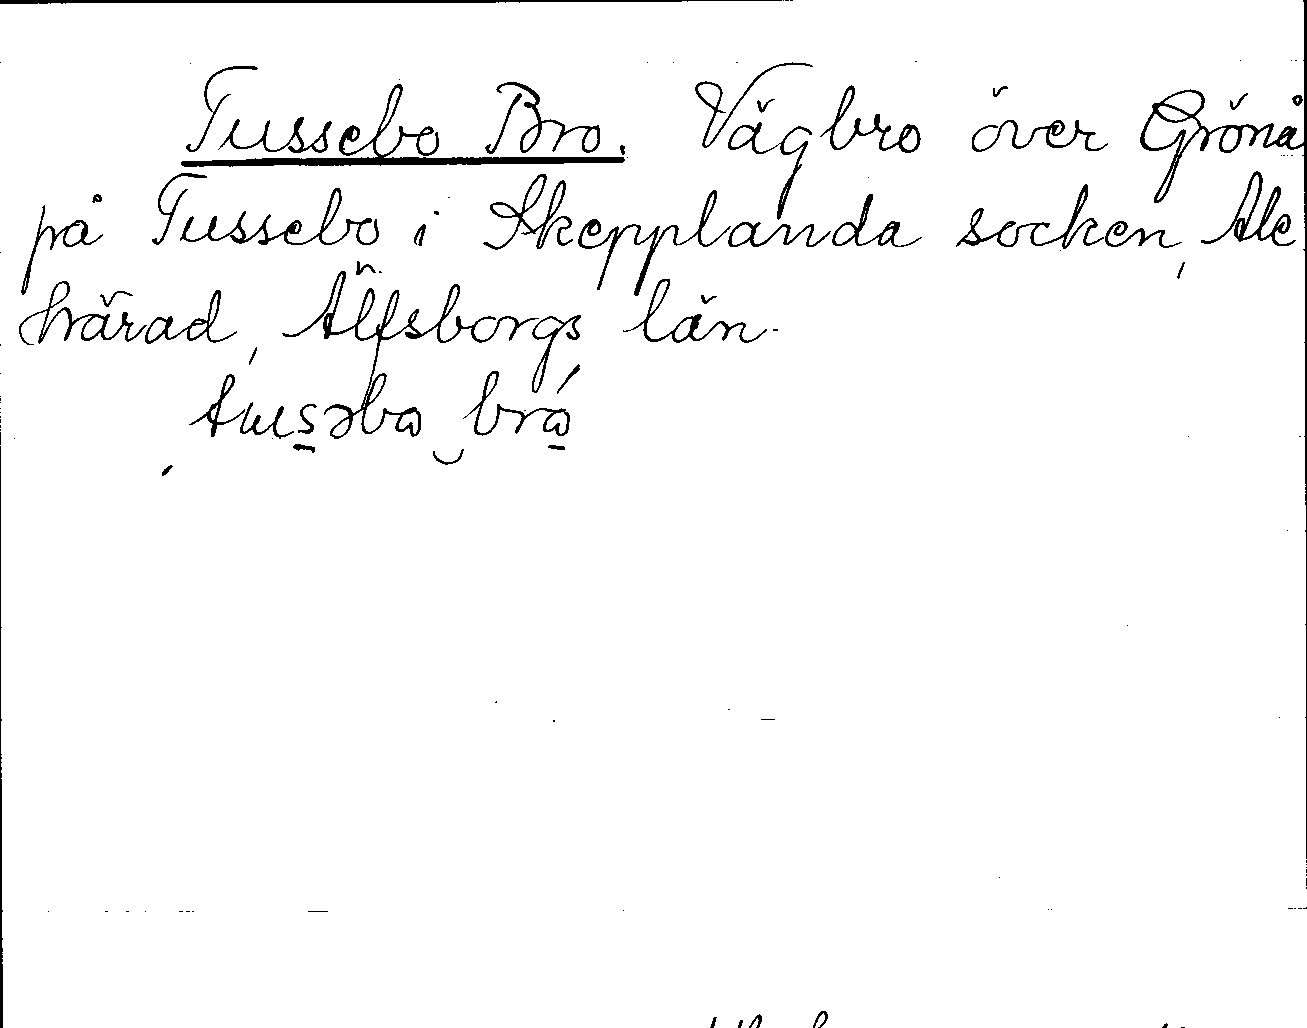 Tussebo Bro. Vägbro över Grönå
på Tussebo i Skepplanda socken, Ale
härad, Älfsborgs län.